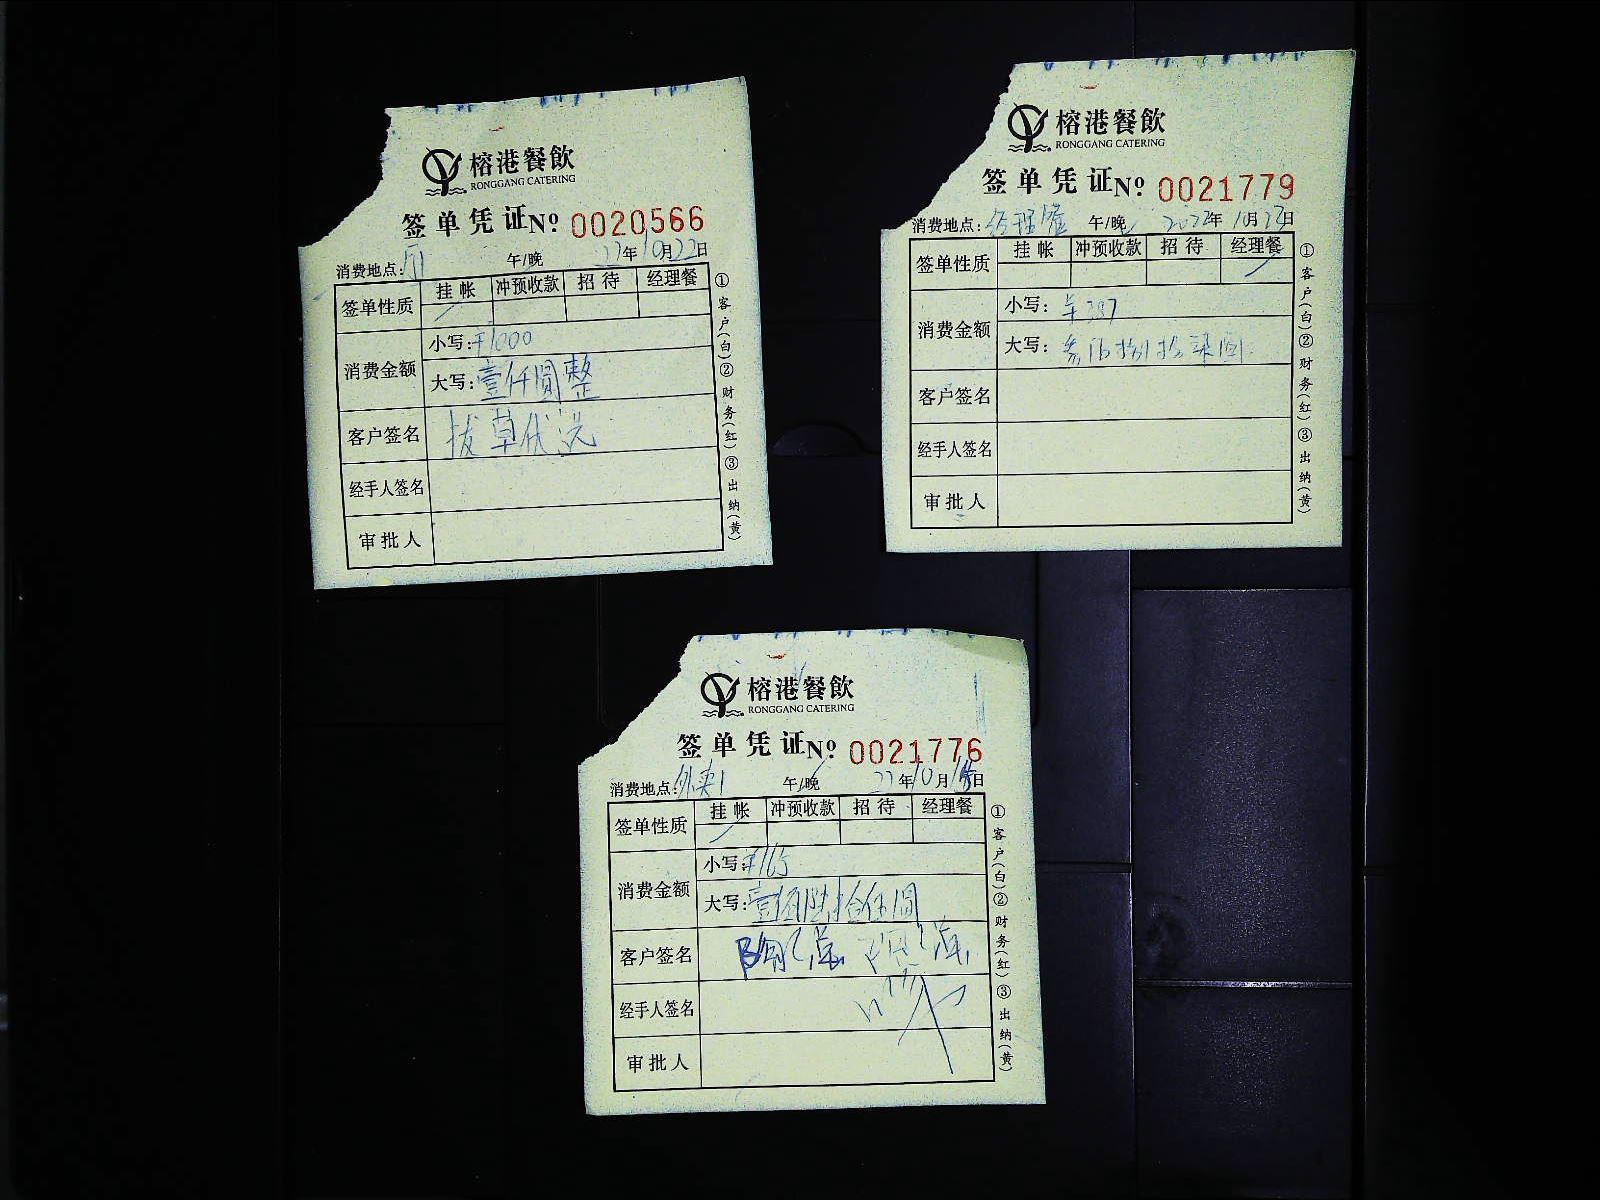 榕港餐飲
RONGGANG CATERING
签单凭证№ 0020566
消费地点: 午/晚 22年10月22日
签单性质 挂帐 冲预收款 招待 经理餐
消费金额 小写:¥1000
大写:壹仟圆整
客户签名 拔草优选
经手人签名
审批人
①客户(白)②财务(红)③出纳(黄)
榕港餐飲
RONGGANG CATERING
签单凭证№ 0021779
消费地点:经理餐 午/晚 2022年10月23日
签单性质 挂帐 冲预收款 招待 经理餐
消费金额 小写:¥387
大写:叁佰捌拾柒圆
客户签名
经手人签名
审批人
①客户(白)②财务(红)③出纳(黄)
榕港餐飲
RONGGANG CATERING
签单凭证№ 0021776
消费地点:外卖1 午/晚 22年10月 日
签单性质 挂帐 冲预收款 招待 经理餐
消费金额 小写:¥165
大写:壹佰陆拾伍圆
客户签名
经手人签名
审批人
①客户(白)②财务(红)③出纳(黄)